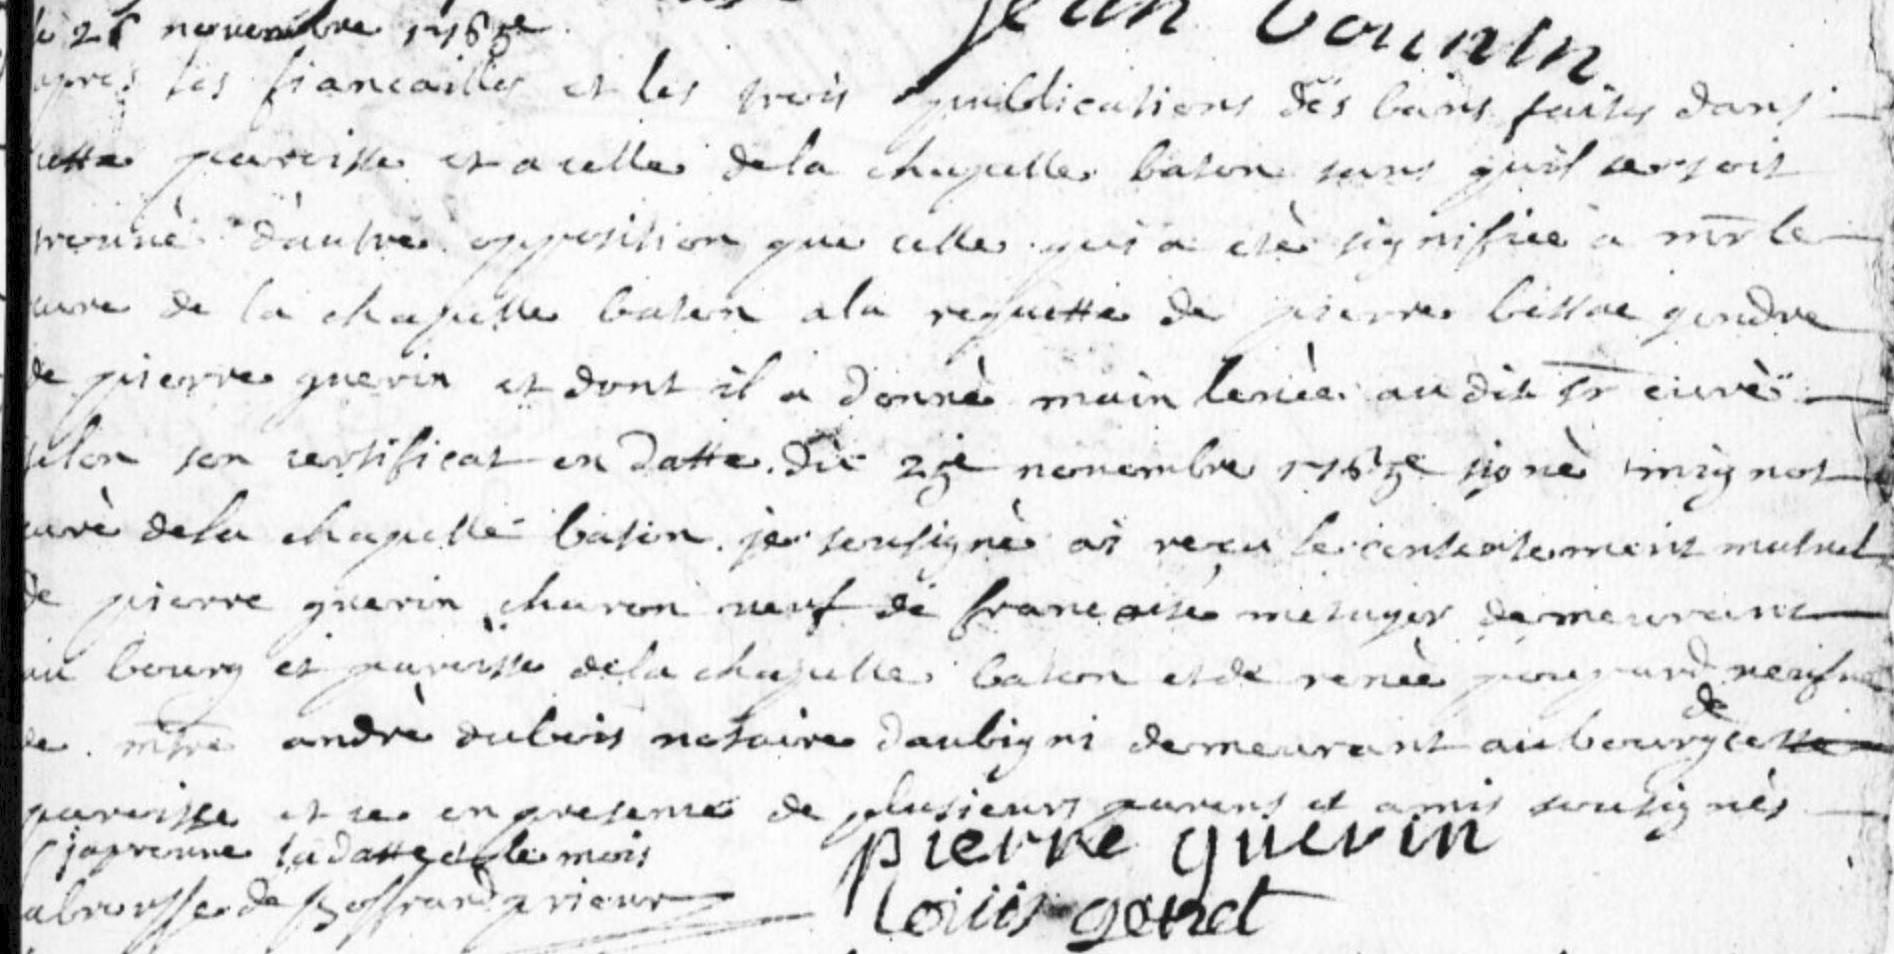 jean bounin
le 26 novembre 1765e
apres les fiancailles et les trois publications des bans faites dans
cette paroisse et a celle de la chapelle baton sans qu'il se soit
trouvè d'autre opposition que celle qui a etè signifiée a mr le
curé de la chapelle baton a la requette de pierre gendre
de pierre guerin et dont il a donnè main levèe au dit sr curè
selon son certificat en datte du 25e novembre 1765e signè mignot
curè de la chapelle baton je sousignè ai reçu le consentement mutuel
de pierre guerin charon veuf de francoise metayer demeurant
au bourg et paroisse de la chapelle baton et de renèe veufve
de mtre andrè dubois notaire daubigni demeurant au bourg de cette
paroisse et ce en presence de plusieurs parens et amis sousignès
j'aprouve la datte et le mois pierre guerin
prieur louiis